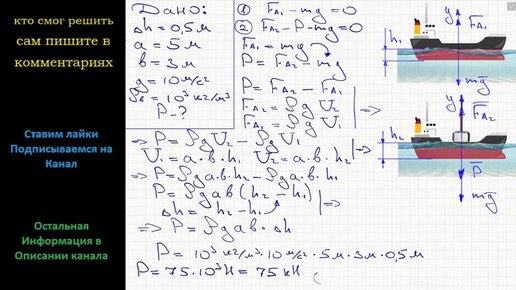 кто смог решить
сам пишите в
комментариях
Ставим лайки
Подписываемся на
Канал
Остальная
Информация в
Описании канала
Дано:
Δh = 0,5 м
a = 5 м
в = 3 м
g = 10 м/с²
ρв = 10³ кг/м³
P - ?
① F_A1 - mg = 0
② F_A2 - P - mg = 0
F_A1 = mg
P = F_A2 - mg
P = F_A2 - F_A1
F_A2 = ρg V₂
F_A1 = ρg V₁ | ⇒
⇒ P = ρg V₂ - ρg V₁
V₁ = a·в·h₁ V₂ = a·в·h₂ | ⇒
P = ρg a·в·h₂ - ρg a·в·h₁
P = ρg a в (h₂ - h₁)
Δh = h₂ - h₁ | ⇒
⇒ P = ρg a в · Δh
P = 10³ кг/м³ · 10 м/с² · 5 м · 3 м · 0,5 м
P = 75·10³ Н = 75 кН
y
F_A1
h₁
mg
y
F_A2
h₂
P
mg